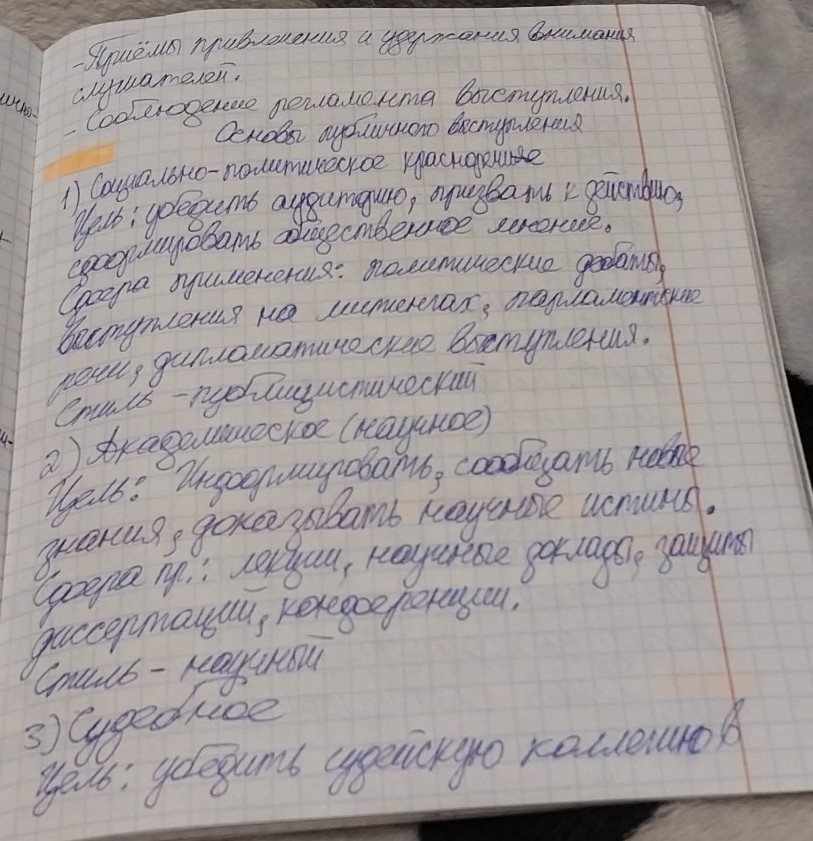 -Приёмы привлечения и удержания внимания
слушателей.
- Соблюдение регламента выступления.
Основы публичного выступления
1) Социально-политическое красноречие
Цель: убедить аудиторию, призвать к действию,
сформировать общественное мнение.
Сфера применения: политические дебаты,
выступления на митингах, парламентские
речи, дипломатические выступления.
Стиль - публицистический
2) Академическое (научное)
Цель: Информировать, сообщать новые
знания, доказывать научные истины.
Сфера пр.: лекции, научные доклады, защиты
диссертаций, конференции.
Стиль - научный
3) Судебное
Цель: убедить судейскую коллегию в